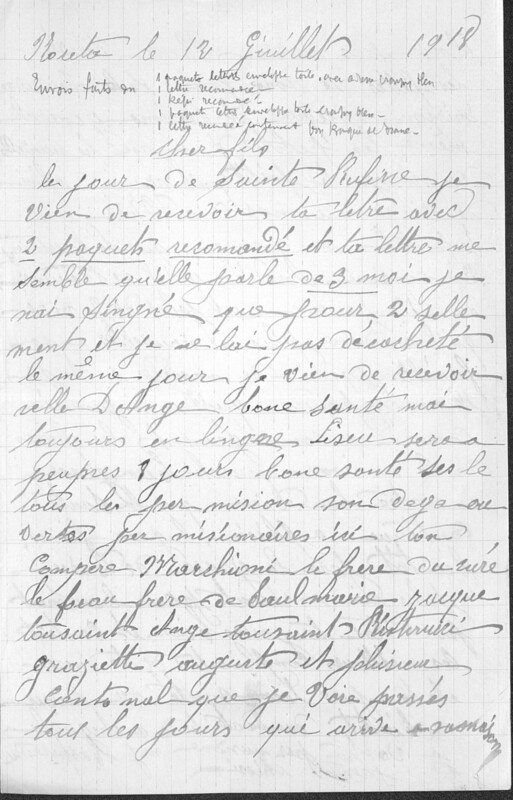 le 12 Giuillet 1918
Envois faits en 1 paquets lettres enveloppe toile, avec
1 lettre recommandée
1 Képi recomdé
1 paquet lettres enveloppe toile
1 lettre contenant bon de
cher fils
le jour de Sainte Rufine je
vien de recevoir ta letre avec
2 paquets recomandé et ta lettre me
semble qu'elle parle de 3 moi je
nai singné que pour 2 selle
ment et je ne lai pas décacheté
le même jour je vien de recevoir
selle Dange bone santé mai
toujours en ligne sera a
peupres 8 jours bone santé ses le
tous les per mision son deja ou
vertes per misionaires ici ton
Compère Marchioni le frere du curé
le beau frere de Paul marie
tousaint Ange tousaint
graziette auguste et plusieur
nal que je Voie passés
tout les jours qui arive